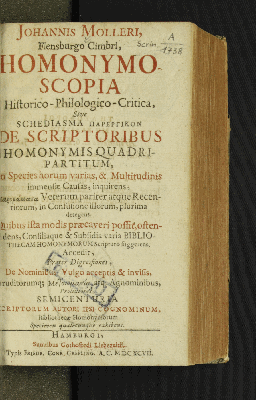 JOHANNIS MOLLERI,
Flensburgo Cimbri,
HOMONYMO-
SCOPIA
Historico-Philologico-Critica,
Sive
SCHEDIASMA ΠΑΡΕΡΓΙΚΟΝ
DE SCRIPTORIBUS
HOMONYMIS QUADRI-
PARTITUM,
Species horum varias, & Multitudinis
immensæ Causas, inquirens;
Veterum pariter atque Recen-
tiorum, in Confusione illorum, plurima
detegens
Quibus ista modis præcaveri possit, osten-
dens, Consiliaque & Subsidia varia BIBLIO-
THECAM HOMONYMORUM scripturis suggerens.
Accedit,
Præter Digressiones
De Nominibus Vulgo acceptis & invisis,
SEMICENTURIA
SCRIPTORUM COGNOMINUM,
Bibliothecæ Homonymorum
HAMBURGI,
Sumtibus Gothofredi Liebezeitii,
Typis A. C. MDCXCVII.
A
Scrin.
1738